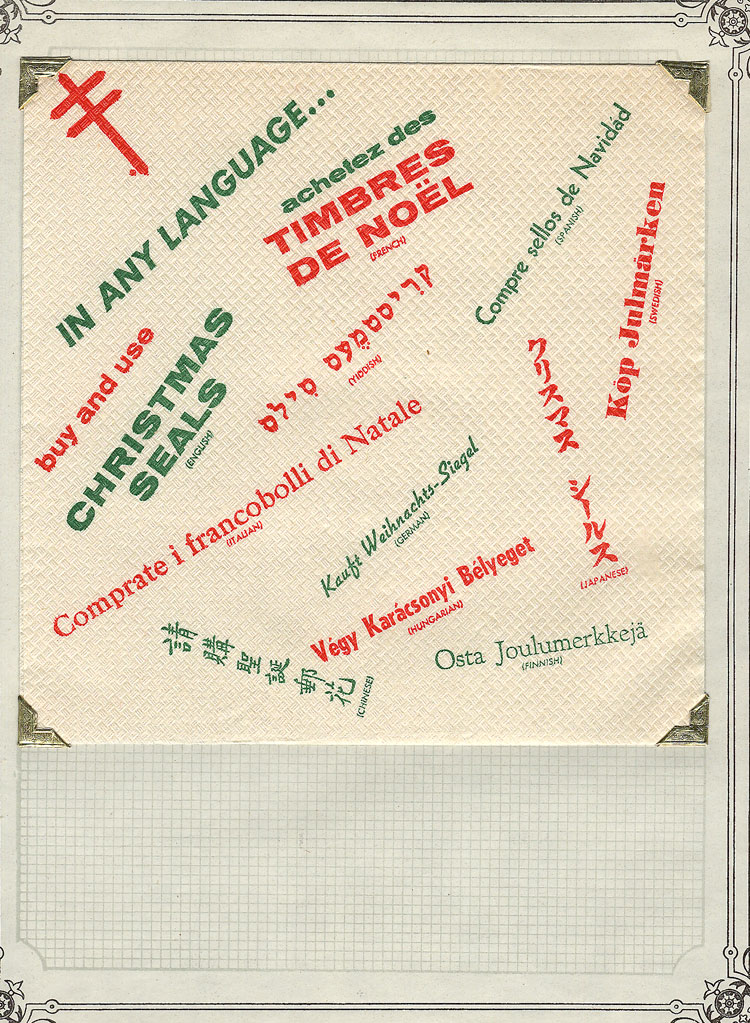 IN ANY LANGUAGE...
buy and use
CHRISTMAS
SEALS
(ENGLISH)
achetez des
TIMBRES
DE NOËL
(FRENCH)
קריסטמעס סילס
(YIDDISH)
Compre sellos de Navidád
(SPANISH)
Köp Julmärken
(SWEDISH)
クリスマス シールス
(JAPANESE)
Comprate i francobolli di Natale
(ITALIAN)
Kauft Weihnachts-Siegel
(GERMAN)
Végy Karácsonyi Bélyeget
(HUNGARIAN)
Osta Joulumerkkejä
(FINNISH)
請購聖誕郵花
(CHINESE)